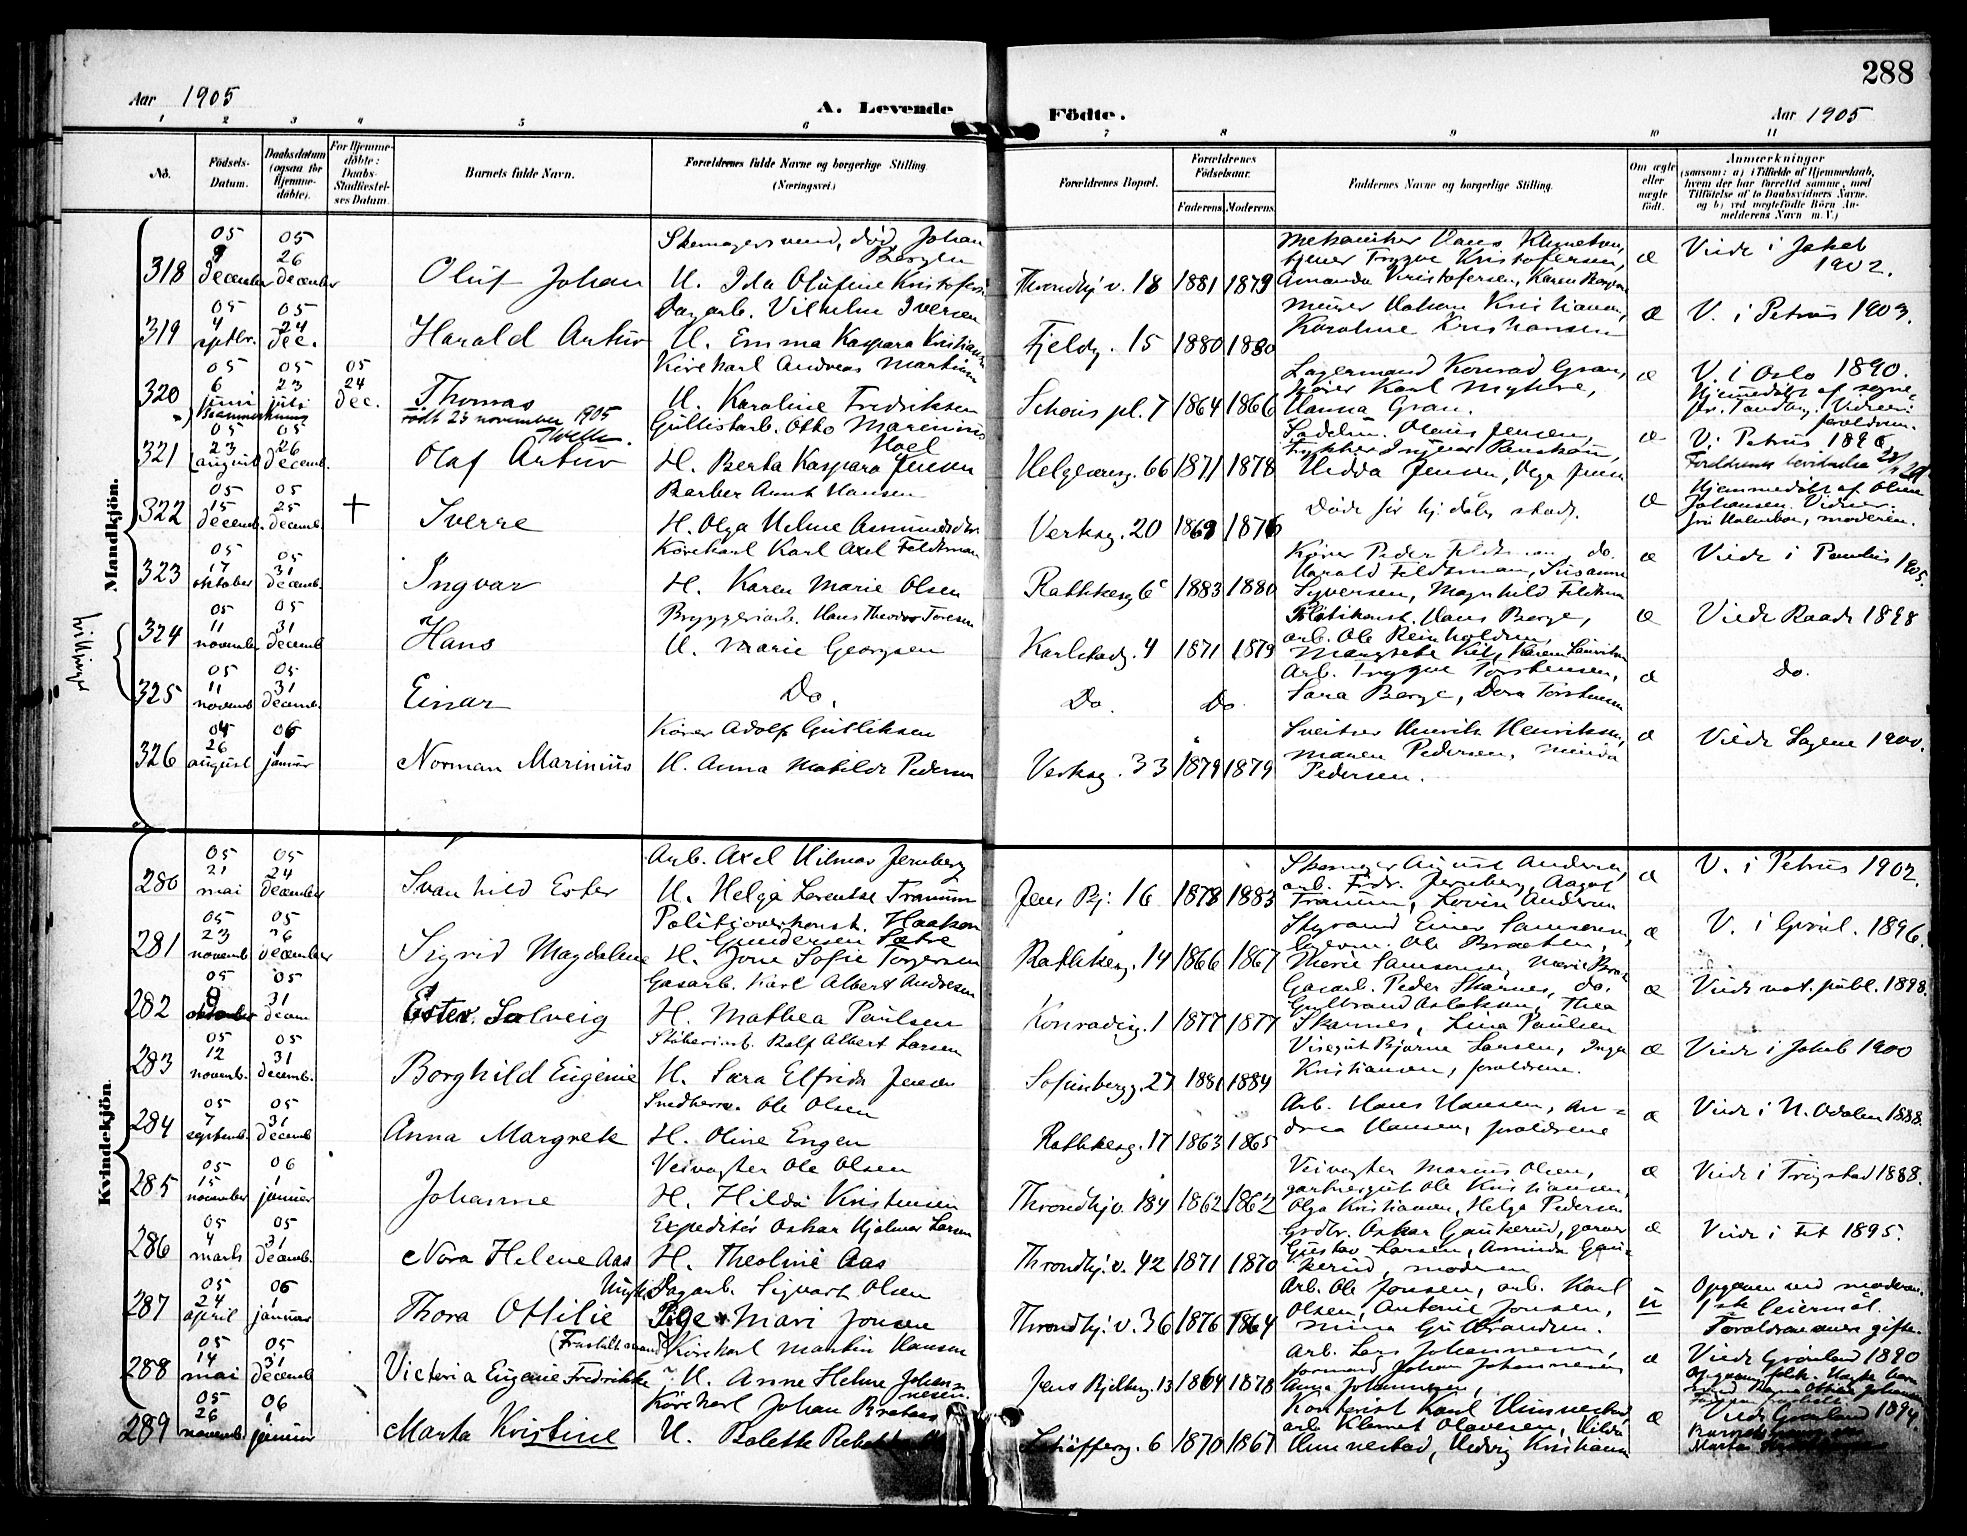 288
Aar 1905
A. Levende
Födte.
Aar 1905
1 2 3 4 5 6 7 8 9 10 11
No.
Födsels-Datum.
Daabsdatum (ogsaa for Hjemme-döbte).
For Hjemme-döbte: Daabs-Stadfæstel-ses Datum.
Barnets fulde Navn.
Forældrenes fulde Navne og borgerlige Stilling
(Næringsvei.)
Forældrenes Bopæl.
Forældrenes Födselsaar.
Faderens Moderens
Faddernes Navne og borgerlige Stilling.
Om ægte eller uægte født.
Anmærkninger
(saasom: a) i Tilfælde af Hjemmedaab, hvem der har forrettet samme, med Tilföielse af to Daabsvidners Navne, og b) ved uægtefödte Börn An-melderens Navn m. V.)
Mandkjön.
318
05 december
05 26 december
Oluf Johan
Skomagersvend, död, Johan Bergen
H. Ida Olufine Kristofers
Throndhj. v. 18 1881 1879
Mekaniker Hans
Tjener Trygve Kristofersen,
Amanda Kristofersen, Karen
æ
Viede i Jakob 1902.
319
05 4 septbr.
05 24 dec.
Harald Artur
Dagarb. Vilhelm Iversen
H. Emma Kaspara Kristians
Fjeldg. 15 1880 1880
Kristiansen,
Karoline Kristiansen
æ
V. i Petrus 1903.
320
05 6 juni
05 23 juli
05 24 dec.
Thomas
født 23 november 1905
Kjørekarl Andreas Martinsen
H. Karoline Fredriksen
Schous pl. 7 1864 1866
Lagermand Konrad Gran,
Kjører Karl Myhre,
Hanna Gran.
æ
V. i Oslo 1890.
Hjemmedøbt af sogne-
pr. Tandberg. Vidner:
foreldrene.
321
05 23 august
05 26 decemb.
Olaf Artur
Gullistarb. Otto Marinius Hoel
H. Berta Kaspara Jensen
Helgesensg. 66 1871 1878
Olaus Jensen,
Hedda Jensen, Olga Jensen
æ
V. Petrus 1896
322
05 15 decemb.
05 25 decemb.
+
Sverre
Barber Arnt Hansen
H. Olga Helene Asmundsdatter
Verksg. 20 1869 1876
Døde før hj. døbs stadf.
æ
Hjemmedøbt af Oline
Johansen. Vidner:
fru Holmboe, moderen.
323
05 17 oktober
05 31 decemb.
Ingvar
Kørekarl Karl Axel Feldtman
H. Karen Marie Olsen
Rathkesg 6c 1883 1880
Kører Peder Feldtman, do.
Harald Feldtman, Susanne
Syversen, Magnhild Feldtman
æ
Viede i Paulus 1905.
tvillinger
324
05 11 november
05 31 decemb
Hans
Bryggeriarb. Hans Theodor Toresen
H. Marie Georgsen
Karlstadg. 4 1871 1879
Politikonst. Hans Berge,
arb. Ole Reinholdsen,
æ
Viede Raade 1898
325
05 11 novemb
05 31 decemb.
Einar
Do.
Do. Do
Arb. Trygve Torstensen,
Sara Berge, Dora Torstensen
æ
do.
326
05 26 august
06 1 januar
Norman Marinius
Kører Adolf Gulliksen
H. Anna Matilde Pedersen
Verksg. 33 1879 1879
Sveitser Henrik Henriksen,
Maren Pedersen, Minda
Pedersen.
æ
Viede Sagene 1900.
Kvindekjön.
280
05 21 mai
05 24 december
Svanhild Ester
Arb. Axel Hilmar Jernberg
H. Helga Lorentse Tranum
Jens Bj: 16 1878 1883
Skomager August Andersen,
arb. Fredr. Jernberg, Aagot
Tranum, Lovise Andersen
æ
V. i Petrus 1902.
281
05 23 novemb
05 26 december
Sigrid Magdalene
Politioverkonst. Haakon
Gundersen Sætre
H. Jone Sofie Torgersen
Rathkesg. 14 1866 1867
Styrmand Einar Samsonsen,
Ole Braaten,
Marie Samsonsen, Marie
æ
V. i Grønl. 1896.
282
05 9 oktober
05 31 decem
Ester Solveig
Gasarb. Karl Albert Andresen
H. Mathea Paulsen
Konradig. 1 1877 1877
Gasarb. Peder Skarnes, do.
Gulbrand Aslaksen, Thea
Skarnes, Lina Paulsen
æ
Viede not. publ. 1898.
283
05 12 novemb.
05 31 decemb.
Borghild Eugenie
Støberiarb. Rolf Albert Larsen
H. Sara Elfrida Jensen
Sofienbergg. 27 1881 1884
Visegut Bjarne Larsen, Inga
Kristiansen, foreldrene.
æ
Viede i Jakob 1900
284
05 7 septemb.
05 31 decemb
Anna Margrete
Snedkersv. Ole Olsen
H. Oline Engen
Rathkesg. 17 1863 1865
Arb. Hans Hansen, An-
drea Hansen, foreldrene
æ
Viede i N. Odalen 1888.
285
05 15 november
06 1 januar
Johanne
Veivogter Ole Olsen
H. Hilda Kristensen
Throndhjv. 184 1862 1862
Veivogter Marius Olsen,
gartnergut Ole Kristiansen,
Olga Kristiansen, Helga Pedersen
æ
Viede i Trøgstad 1888.
286
05 4 marts
05 31 decemb.
Nora Helene Aas
Expeditør Oskar Hjalmar Larsen
H. Theoline Aas
Throndhj. v. 42 1871 1870
Grdbr. Oskar Gaukerud, garver
Gustav Larsen, Aminda Gau-
kerud, moderen
æ
Viede i Fet 1895.
287
05 24 april
06 1 januar
Thora Ottilie
Dagarb. Sigvart Olsen
Pige Mari Jonsen
Throndhj. v. 36 1876 1864
Arb. Ole Jonsen, arb. Karl
Olsen, Antonie Jonsen,
Mina Gulbrandsen.
u
Opgaven ved moderen.
1ste leiermål.
Foreldrene gifte.
288
05 14 mai
05 31 decemb
Victoria Eugenie Fredrikke
(Fraskilt mand) Kørekarl Martin Hansen
H. Anne Helene Johan-
nesen.
Jens Bjelkesg. 13 1864 1878
Arb. Lars Johannesen,
formand Johan Johannesen
Anna Johannesen,
æ
Viede Grønland 1890
289
05 26 novemb.
06 1 januar
Marta Kristine
Kørekarl Johan Braten
H. Bolette
Schæfferg. 6 1870 1867
Kontorist Karl Hunnestad,
arb Klemet Olavesen, Hilda
Hunnestad, Hedvig Kristiansen
æ
Viede Grønland 1894.